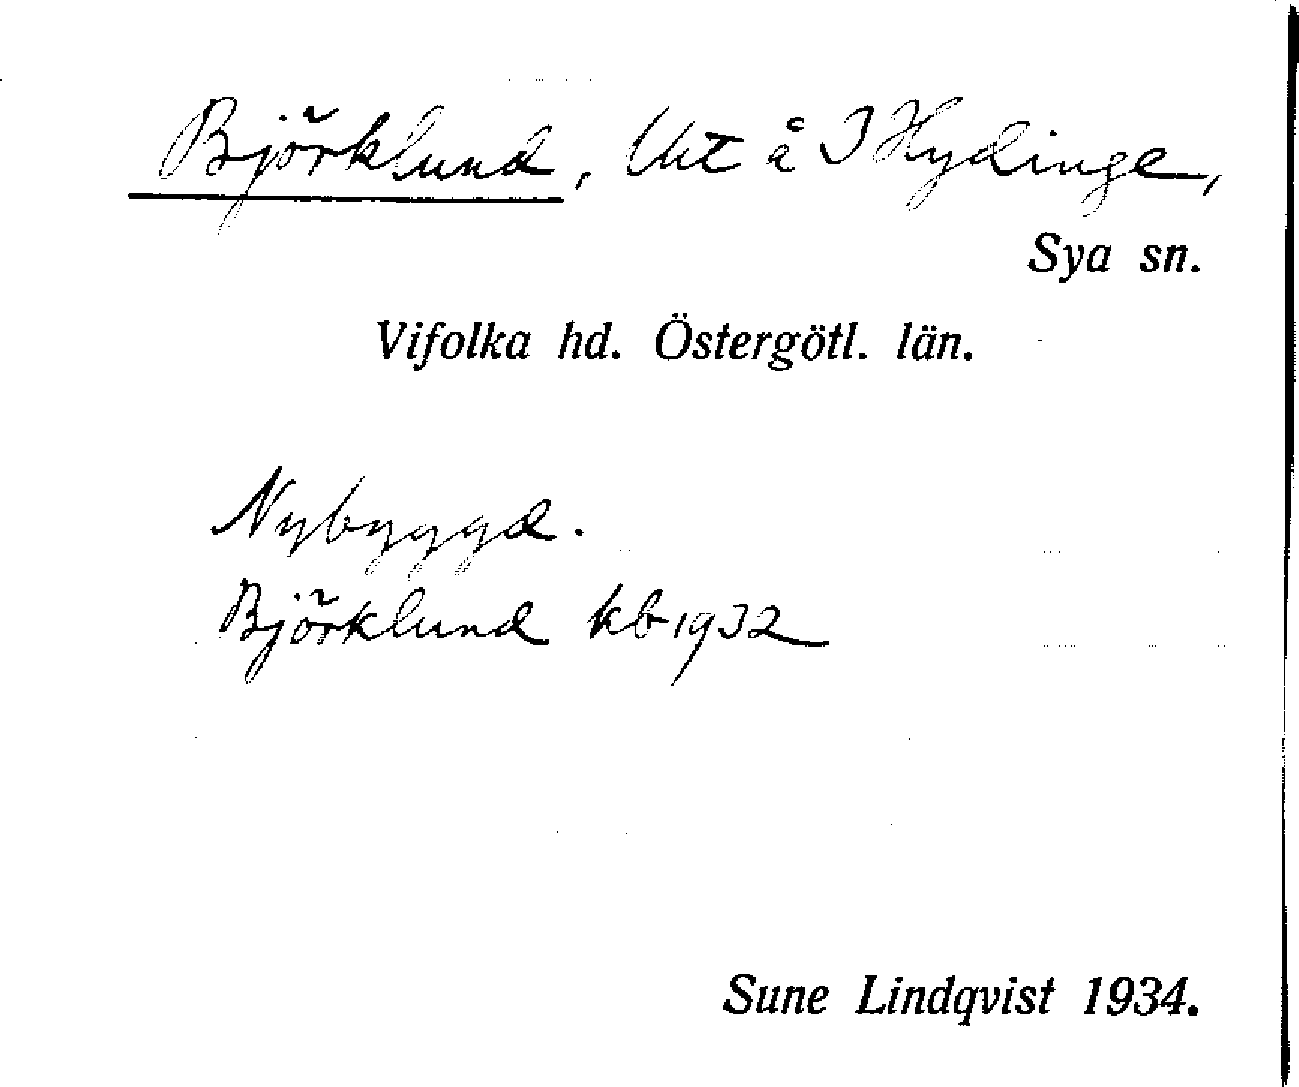 Björklund, lht å 3 Hydinge,
Sya sn.
Vifolka hd. Östergötl. län.
Nybyggd.
Björklund kb 1932
Sune Lindqvist 1934.